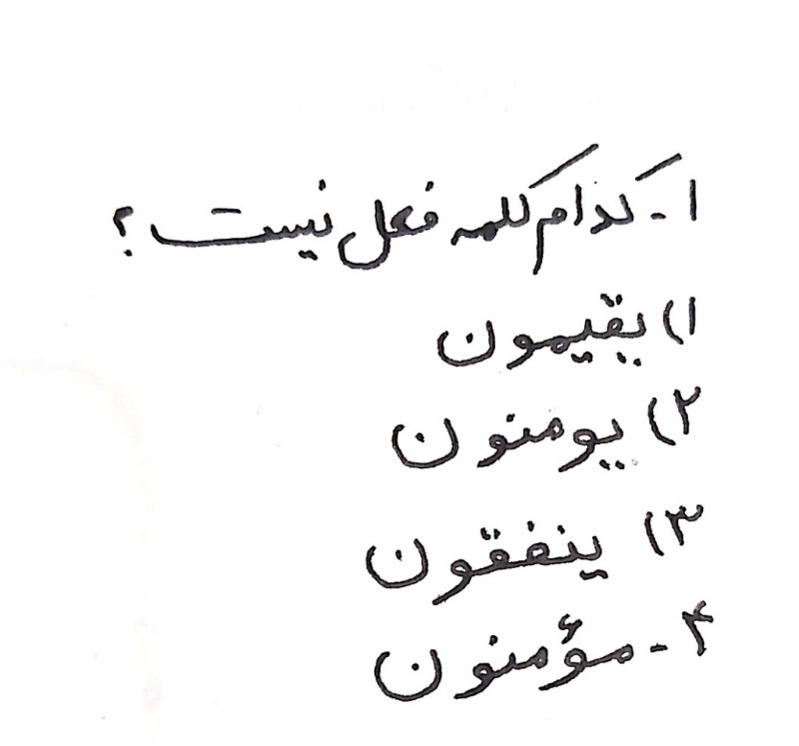 ۱- کدام کلمه فعل نیست؟
۱) یقیمون
۲) یومنون
۳) ینفقون
۴- مؤمنون